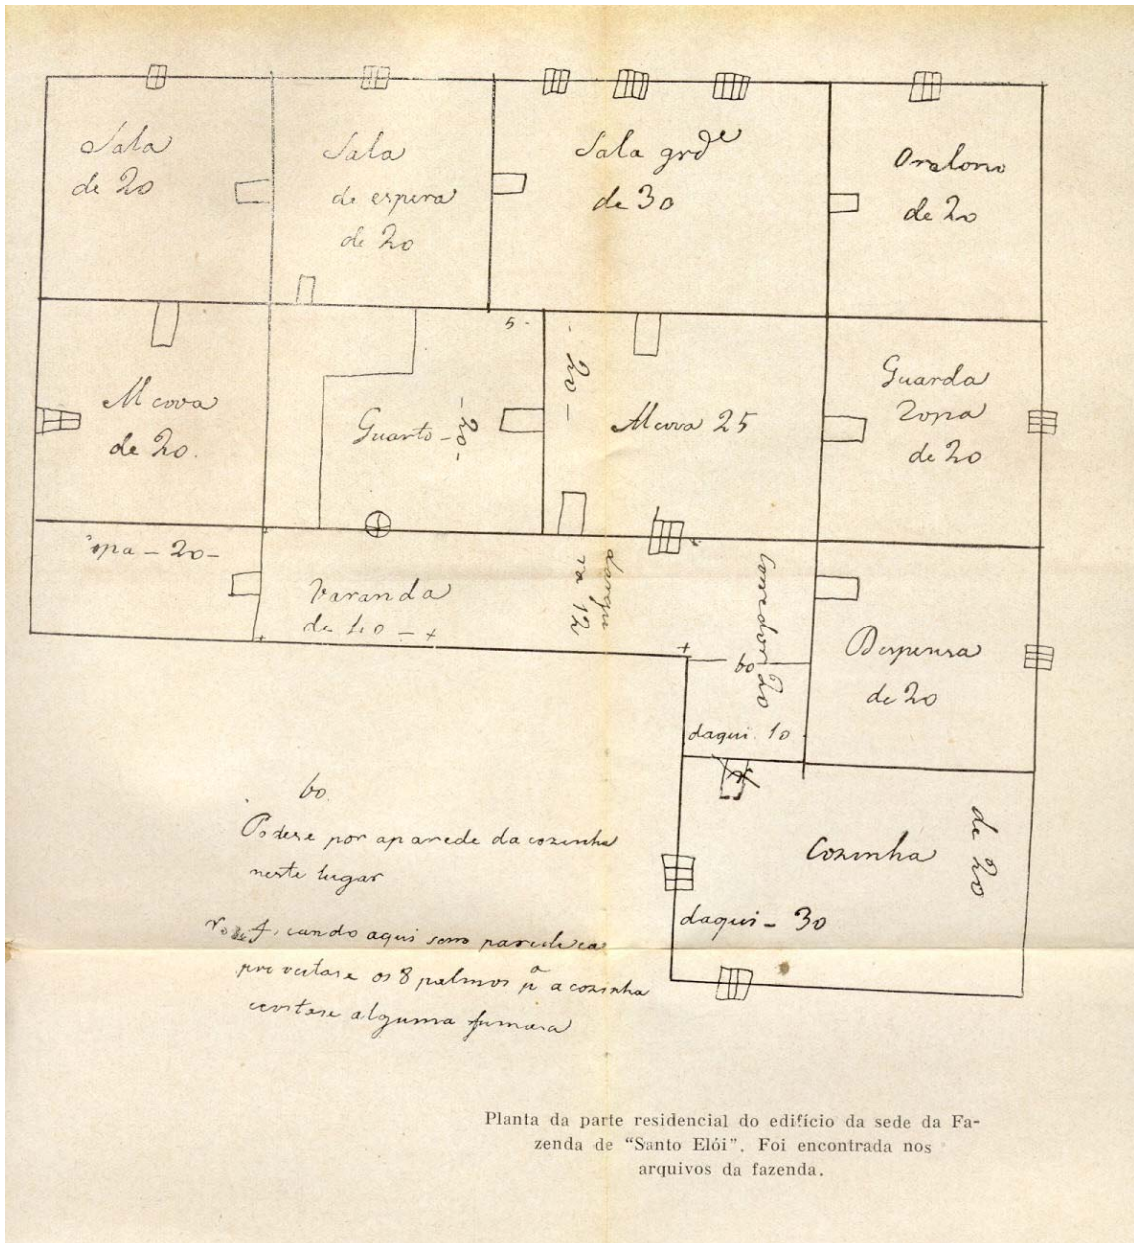 Sala
de 20
Sala
de espera
de 20
Sala grde
de 30
Oratorio
de 20
Alcova
de 20.
Guarto -
- 20 -
5 -
- 20 -
Alcova 25
Guarda
Ropa
de 20
opa - 20 -
Varanda
de 40 - +
daqui
12
Corredor 20
Despensa
de 20
bo
daqui. 10
Cozinha
de 20
daqui - 30
bo.
Podese por aparede da cozinha
neste lugar
ficando aqui
os 8 palmos pa a cozinha
alguma fumasa
Planta da parte residencial do edifício da sede da Fa-
zenda de “Santo Elói”. Foi encontrada nos
arquivos da fazenda.